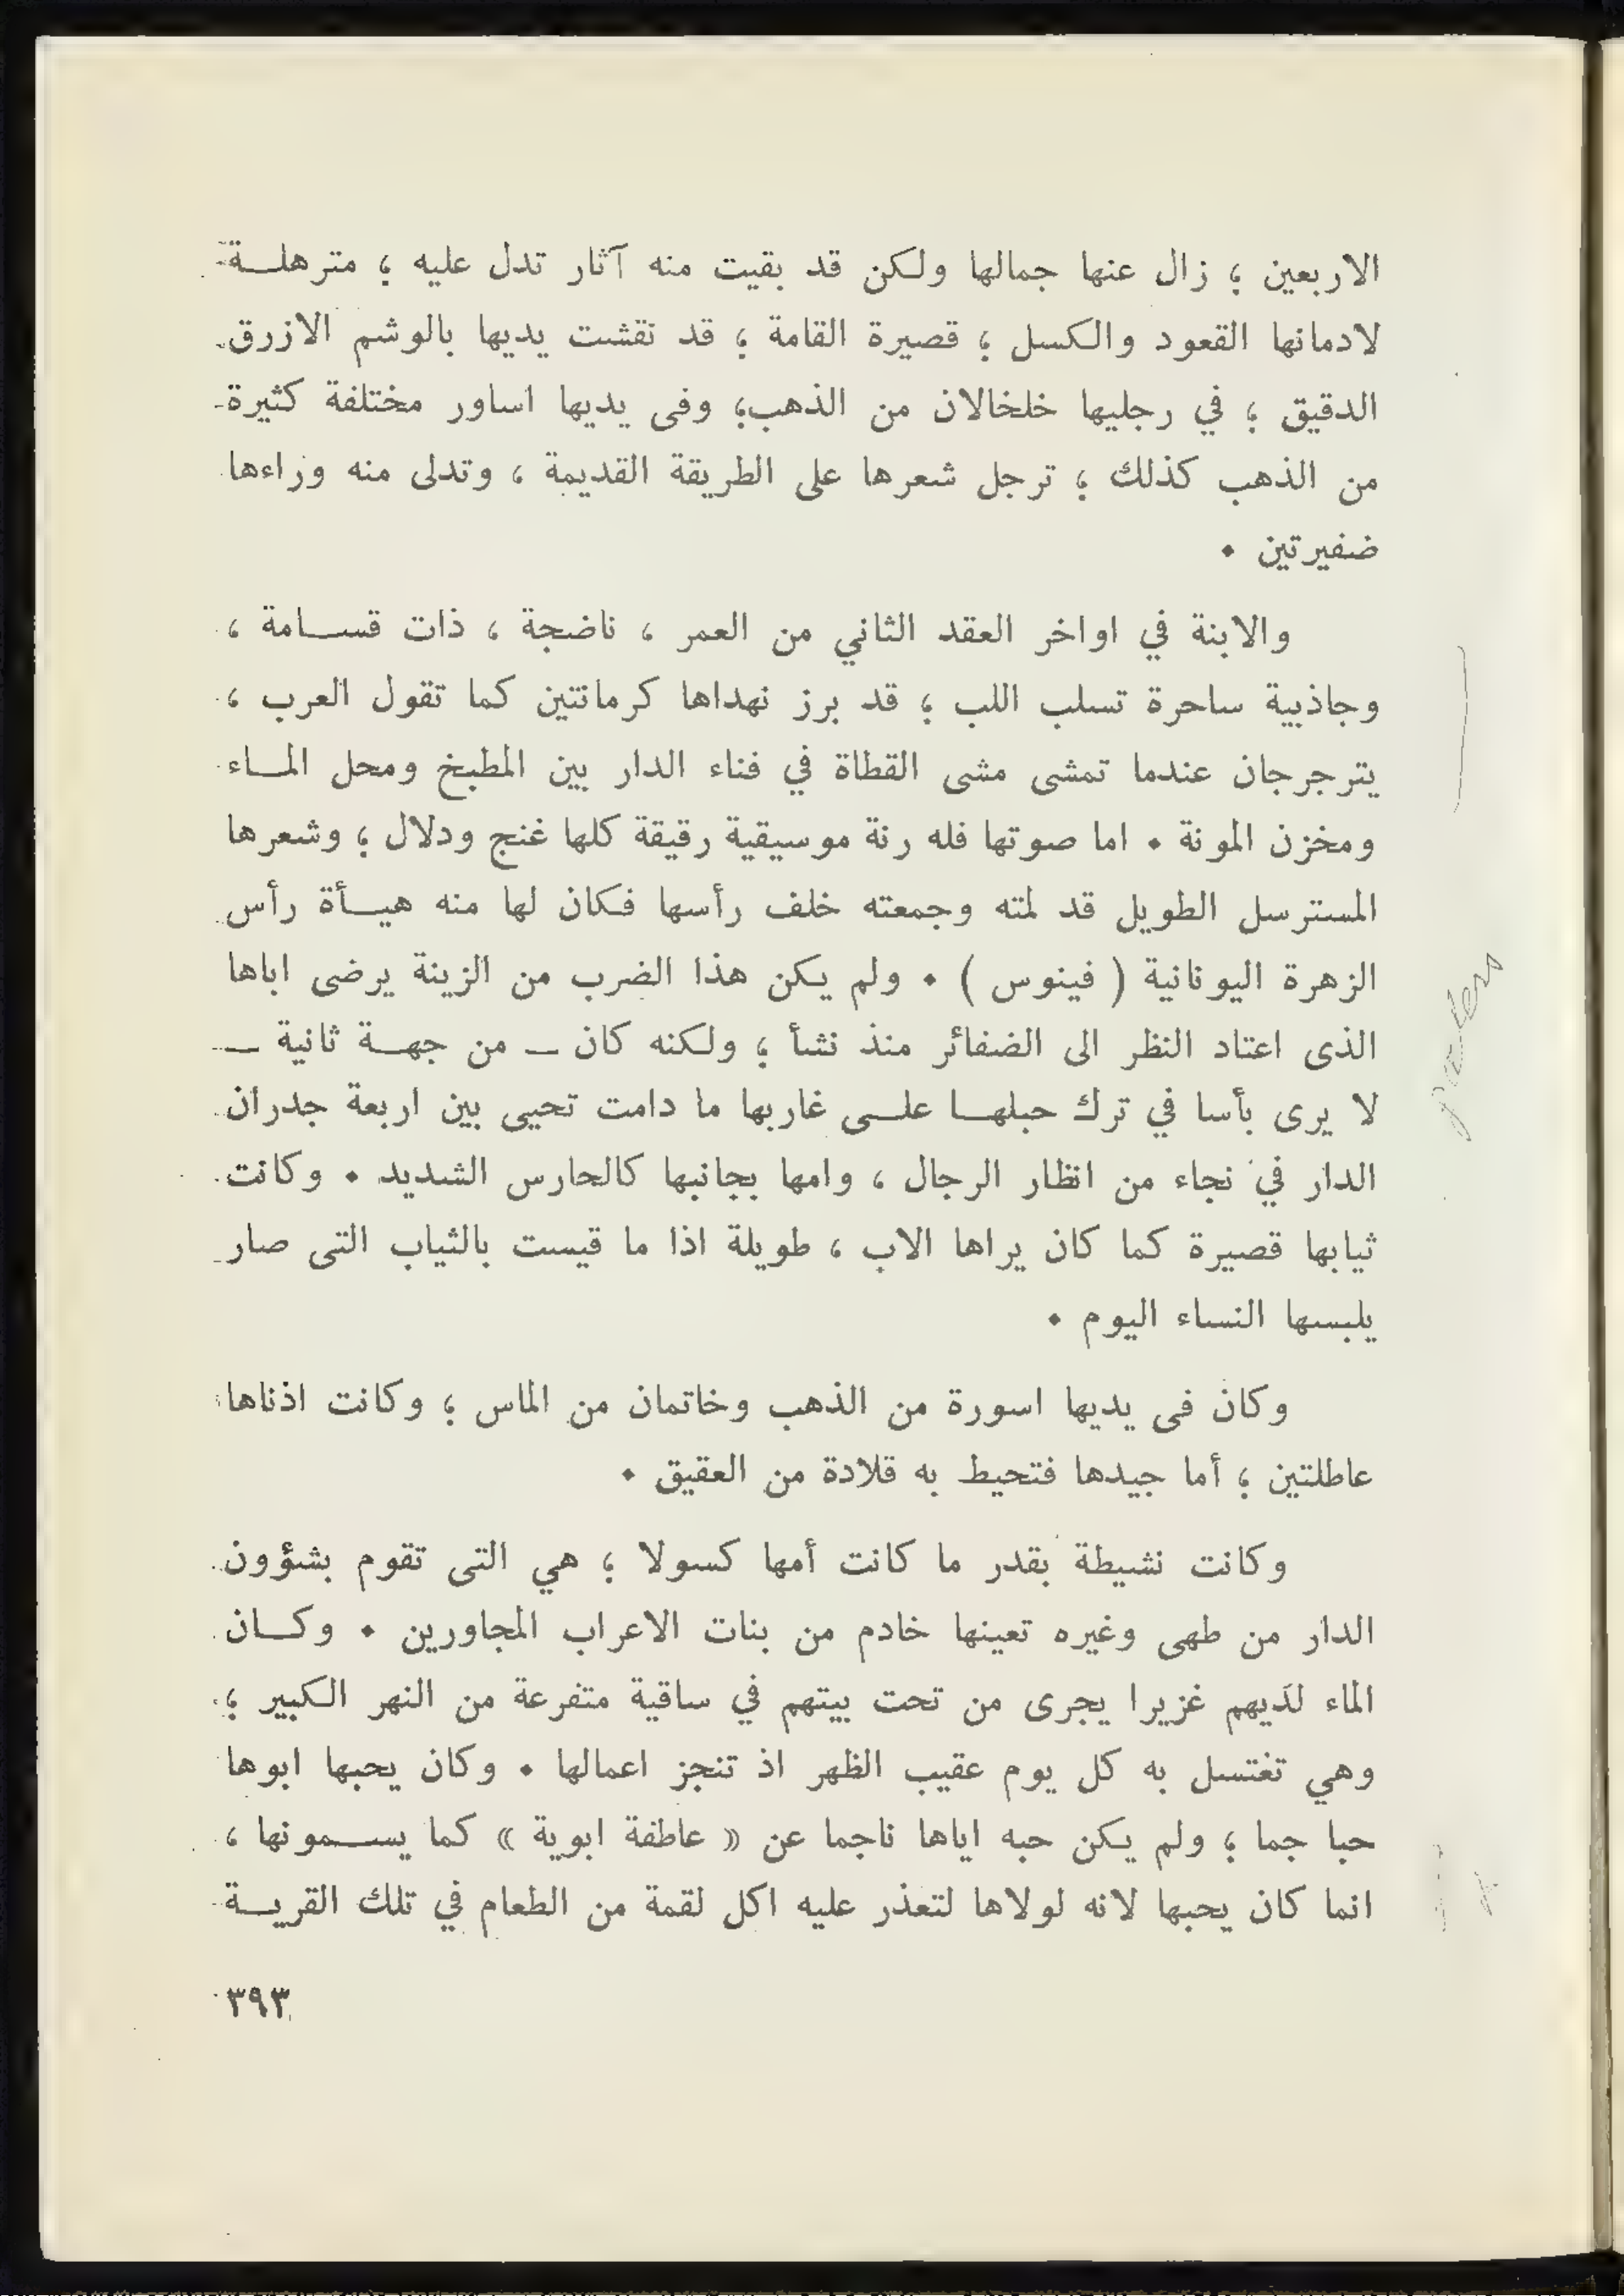 الاربعين ؛ زال عنها جمالها ولكن قد بقيت منه آثار تدل عليه ؛ مترهلـة
لادمانها القعود والكسل ؛ قصيرة القامة ؛ قد نقشت يديها بالوشم الازرق
الدقيق ؛ في رجليها خلخالان من الذهب؛ وفى يديها اساور مختلفة كثيرة
من الذهب كذلك ؛ ترجل شعرها على الطريقة القديمة ، وتدلى منه وراءها
ضفيرتين .
والابنة في اواخر العقد الثاني من العمر ، ناضجة ، ذات قسـامة ،
وجاذبية ساحرة تسلب اللب ؛ قد برز نهداها كرمانتين كما تقول العرب ،
يترجرجان عندما تمشى مشى القطاة في فناء الدار بين المطبخ ومحل المـاء
ومخزن المونة . اما صوتها فله رنة موسيقية رقيقة كلها غنج ودلال ؛ وشعرها
المسترسل الطويل قد لمته وجمعته خلف رأسها فكان لها منه هيـأة رأس
الزهرة اليونانية ( فينوس ) . ولم يكن هذا الضرب من الزينة يرضى اباها
الذى اعتاد النظر الى الضفائر منذ نشأ ؛ ولكنه كان ــ من جهـة ثانية ــ
لا يرى بأسا في ترك حبلهـا علـى غاربها ما دامت تحيى بين اربعة جدران
الدار في نجاء من انظار الرجال ، وامها بجانبها كالحارس الشديد . وكانت
ثيابها قصيرة كما كان يراها الاب ، طويلة اذا ما قيست بالثياب التى صار
يلبسها النساء اليوم .
وكان فى يديها اسورة من الذهب وخاتمان من الماس ؛ وكانت اذناها
عاطلتين ؛ أما جيدها فتحيط به قلادة من العقيق .
وكانت نشيطة بقدر ما كانت أمها كسولا ؛ هي التى تقوم بشؤون
الدار من طهى وغيره تعينها خادم من بنات الاعراب المجاورين . وكـان
الماء لديهم غزيرا يجرى من تحت بيتهم في ساقية متفرعة من النهر الكبير ؛
وهي تغتسل به كل يوم عقيب الظهر اذ تنجز اعمالها . وكان يحبها ابوها
حبا جما ؛ ولم يكن حبه اياها ناجما عن « عاطفة ابوية » كما يسـمونها ،
انما كان يحبها لانه لولاها لتعذر عليه اكل لقمة من الطعام في تلك القريـة
٣٩٣